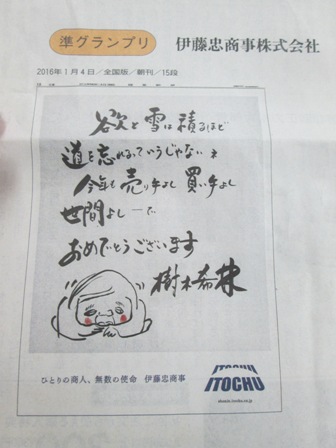 準グランプリ 伊藤忠商事株式会社
2016年1月4日/全国版/朝刊/15段
欲と雪は積るほど
道を忘れるっていうじゃないネ
今年も売り手よし 買い手よし
世間よしーで
おめでとうございます
樹木希林
ひとりの商人、無数の使命 伊藤忠商事
ITOCHU
ITOCHU